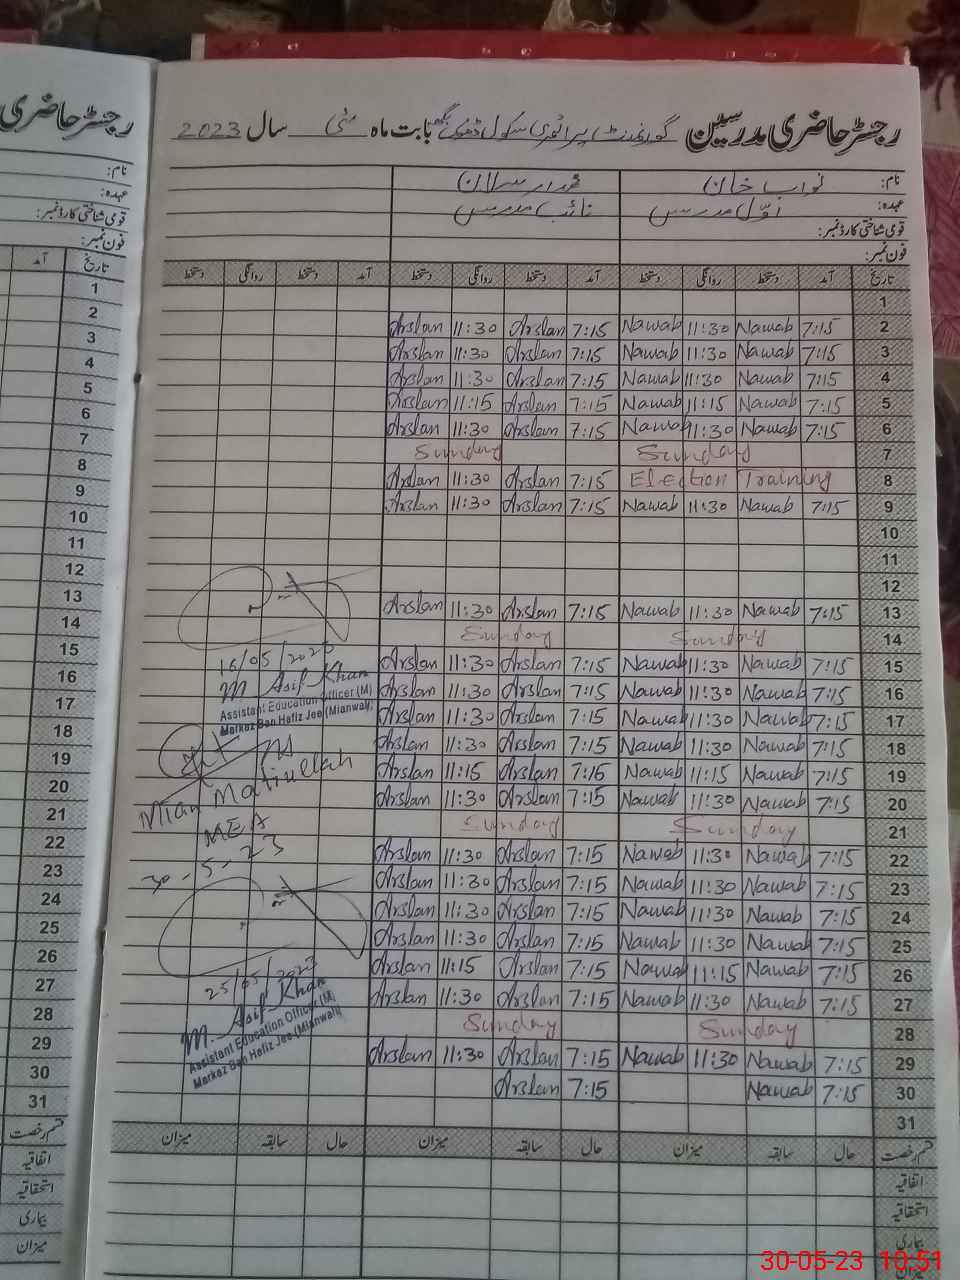 رجسٹر حاضری مدرسین گورنمنٹ پرائمری سکول بابت ماہ مئی سال 2023
نام: نواب خان محمد ارسلان
عہدہ: اوّل مدرس نائب مدرس
قومی شناختی کارڈ نمبر:
فون نمبر:
تاریخ آمد دستخط روانگی دستخط آمد دستخط روانگی دستخط آمد دستخط روانگی دستخط
1
2 7:15 Nawab 11:30 Nawab 7:15 Arslan 11:30 Arslan
3 7:15 Nawab 11:30 Nawab 7:15 Arslan 11:30 Arslan
4 7:15 Nawab 11:30 Nawab 7:15 Arslan 11:30 Arslan
5 7:15 Nawab 11:15 Nawab 7:15 Arslan 11:15 Arslan
6 7:15 Nawab 11:30 Nawab 7:15 Arslan 11:30 Arslan
7 Sunday Sunday
8 Election Training 7:15 Arslan 11:30 Arslan
9 7:15 Nawab 11:30 Nawab 7:15 Arslan 11:30 Arslan
10
11
12
13 7:15 Nawab 11:30 Nawab 7:15 Arslan 11:30 Arslan
14 Sunday Sunday
15 7:15 Nawab 11:30 Nawab 7:15 Arslan 11:30 Arslan
16 7:15 Nawab 11:30 Nawab 7:15 Arslan 11:30 Arslan
17 7:15 Nawab 11:30 Nawab 7:15 Arslan 11:30 Arslan
18 7:15 Nawab 11:30 Nawab 7:15 Arslan 11:30 Arslan
19 7:15 Nawab 11:15 Nawab 7:15 Arslan 11:15 Arslan
20 7:15 Nawab 11:30 Nawab 7:15 Arslan 11:30 Arslan
21 Sunday Sunday
22 7:15 Nawab 11:30 Nawab 7:15 Arslan 11:30 Arslan
23 7:15 Nawab 11:30 Nawab 7:15 Arslan 11:30 Arslan
24 7:15 Nawab 11:30 Nawab 7:15 Arslan 11:30 Arslan
25 7:15 Nawab 11:30 Nawab 7:15 Arslan 11:30 Arslan
26 7:15 Nawab 11:15 Nawab 7:15 Arslan 11:15 Arslan
27 7:15 Nawab 11:30 Nawab 7:15 Arslan 11:30 Arslan
28 Sunday Sunday
29 7:15 Nawab 11:30 Nawab 7:15 Arslan 11:30 Arslan
30 7:15 Nawab 7:15 Arslan
31
قسم رخصت حال سابقہ میزان حال سابقہ میزان حال سابقہ میزان
اتفاقیہ
استحقاقیہ
بیماری
میزان
16/05/2023
M. Asif Khan
Assistant Education Officer (M)
Markaz Ban Hafiz Jee (Mianwali)
Mian Matiullah
MEA
30-5-23
25/05/2023
M. Asif Khan
Assistant Education Officer (M)
Markaz Ban Hafiz Jee (Mianwali)
رجسٹر حاضری
نام:
عہدہ:
قومی شناختی کارڈ نمبر:
فون نمبر:
تاریخ آمد
1
2
3
4
5
6
7
8
9
10
11
12
13
14
15
16
17
18
19
20
21
22
23
24
25
26
27
28
29
30
31
قسم رخصت
اتفاقیہ
استحقاقیہ
بیماری
میزان
30-05-23 10:51